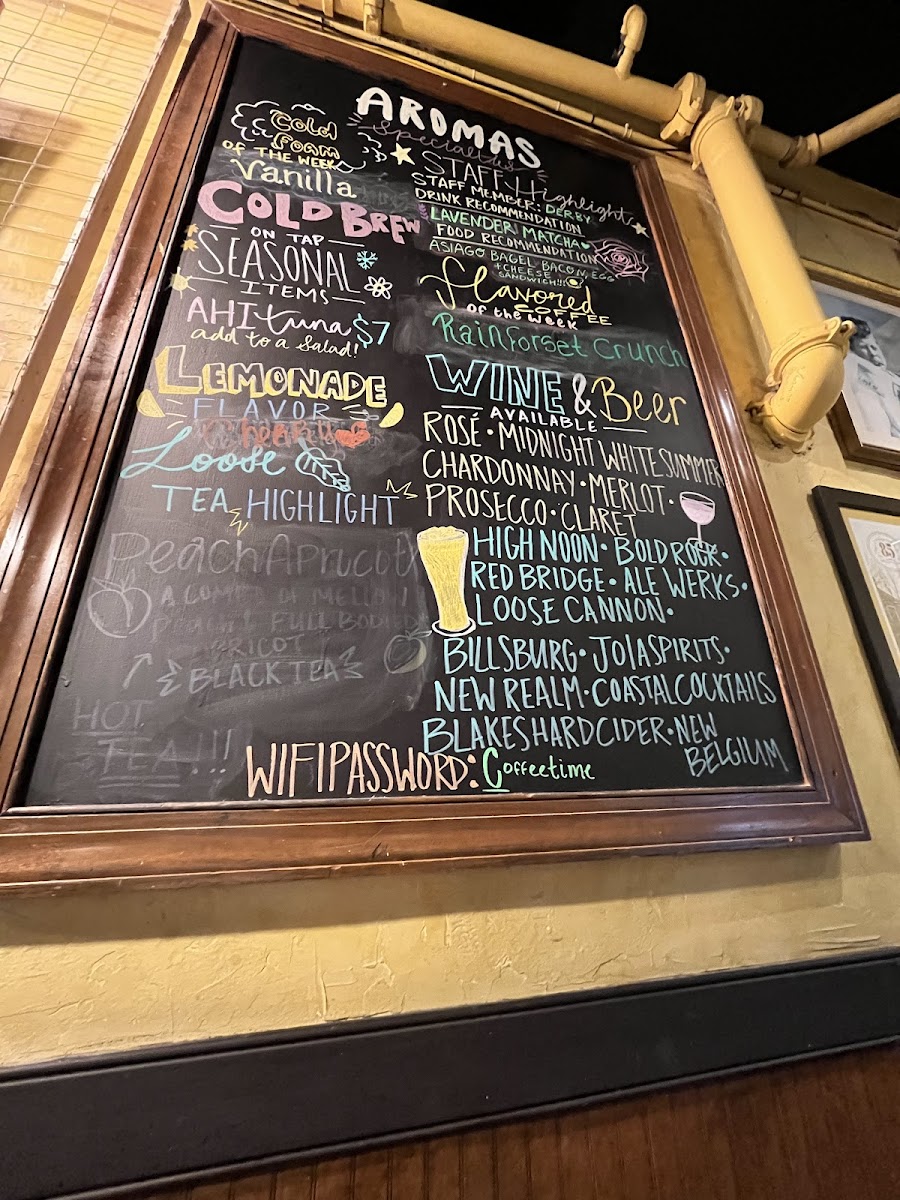 AROMAS
Specialty
Cold
Foam
OF THE WEEK
Vanilla
COLD BREW
ON TAP
SEASONAL
ITEMS
AHI tuna $7
add to a salad!
LEMONADE
FLAVOR
Loose
TEA HIGHLIGHT
Peach Apricot
A COMBO OF MELLOW
PEACH & FULL BODIED
APRICOT
BLACK TEA
HOT
TEA!!!
STAFF Highlight
STAFF MEMBER: DERBY
DRINK RECOMMENDATION
LAVENDER MATCHA
FOOD RECOMMENDATION
ASIAGO BAGEL, BACON, EGG
+ CHEESE
SANDWICH!!!
Flavored
COFFEE
OF the WEEK
Rainforset Crunch
WINE & Beer
AVAILABLE
ROSÉ • MIDNIGHT WHITE SUMMER
CHARDONNAY • MERLOT •
PROSECCO • CLARET
HIGH NOON • BOLD ROCK •
RED BRIDGE • ALE WERKS •
LOOSE CANNON •
BILLSBURG • JOIA SPIRITS •
NEW REALM • COASTAL COCKTAILS
BLAKES HARD CIDER • NEW
BELGIUM
WIFI PASSWORD: Coffeetime
85